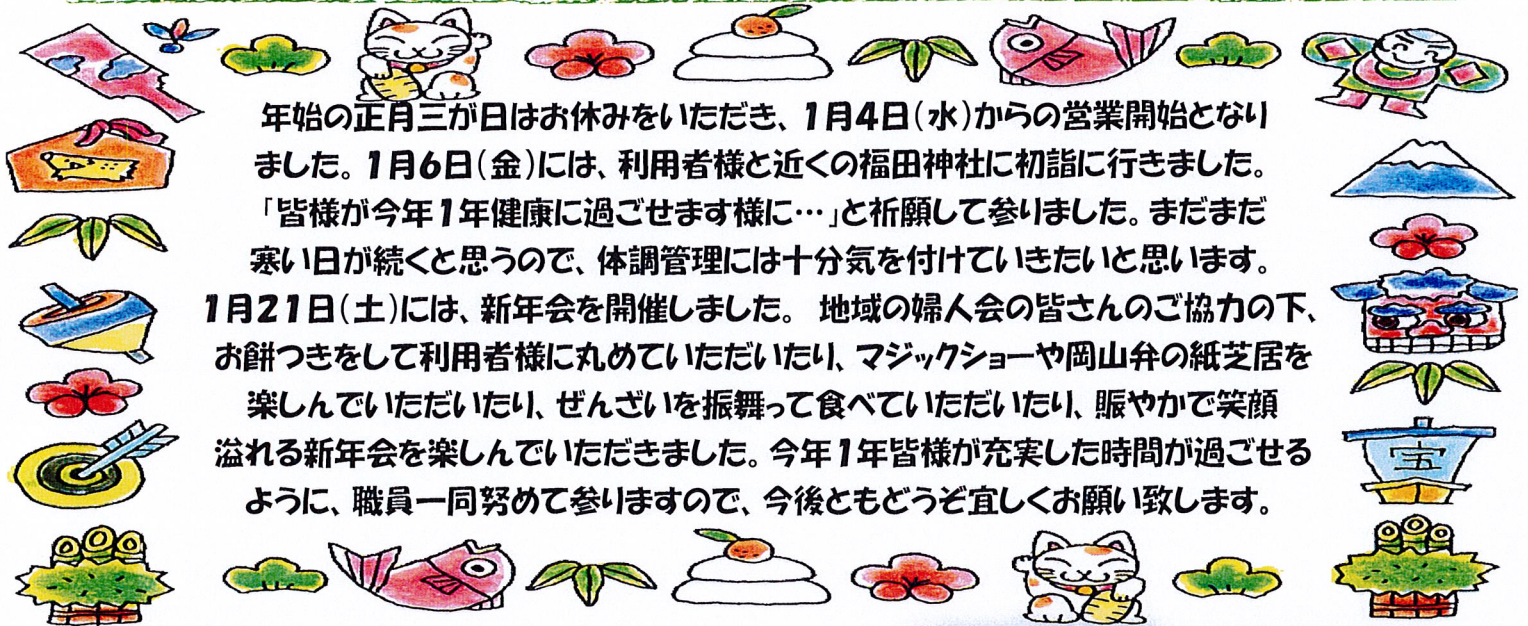 年始の正月三が日はお休みをいただき、1月4日(水)からの営業開始となり
ました。1月6日(金)には、利用者様と近くの福田神社に初詣に行きました。
「皆様が今年1年健康に過ごせます様に…」と祈願して参りました。まだまだ
寒い日が続くと思うので、体調管理には十分気を付けていきたいと思います。
1月21日(土)には、新年会を開催しました。 地域の婦人会の皆さんのご協力の下、
お餅つきをして利用者様に丸めていただいたり、マジックショーや岡山弁の紙芝居を
楽しんでいただいたり、ぜんざいを振舞って食べていただいたり、賑やかで笑顔
溢れる新年会を楽しんでいただきました。今年1年皆様が充実した時間が過ごせる
ように、職員一同努めて参りますので、今後ともどうぞ宜しくお願い致します。
宝